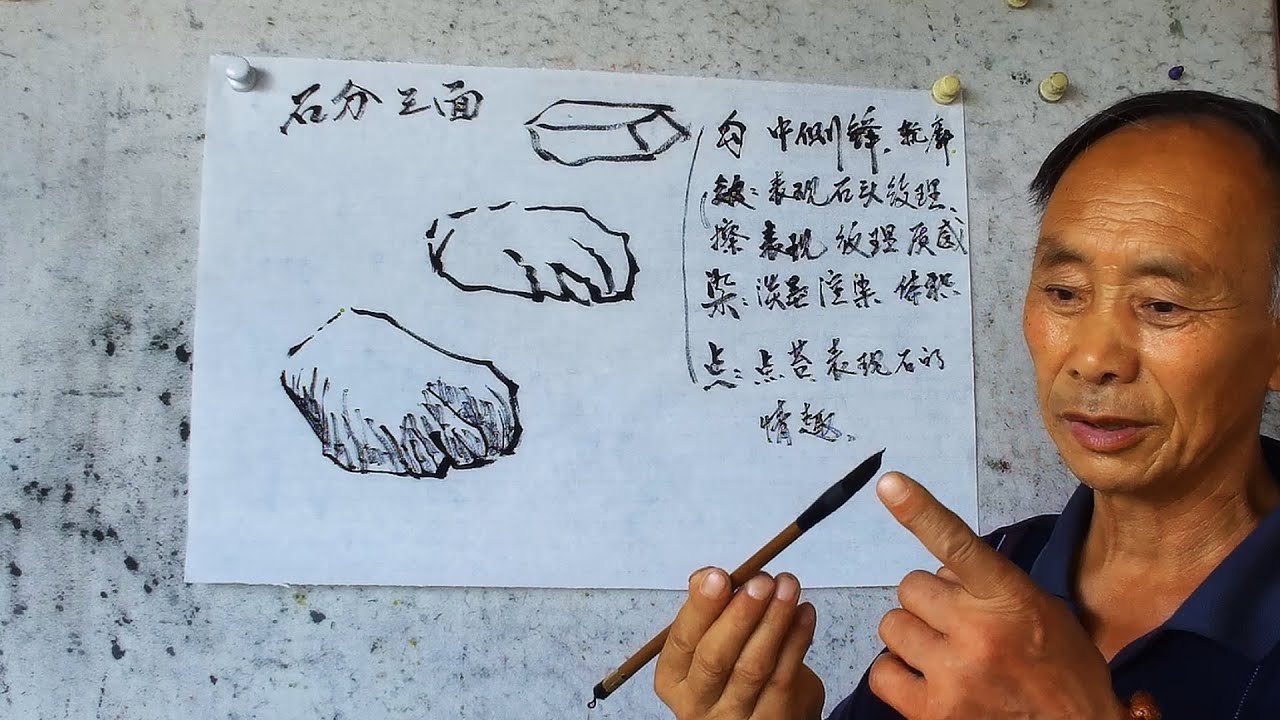 石分三面
勾 中侧锋、轮廓
皴：表现石头纹理、
擦 表现纹理质感
染：淡墨渲染体积
点：点苔表现石的
情趣、